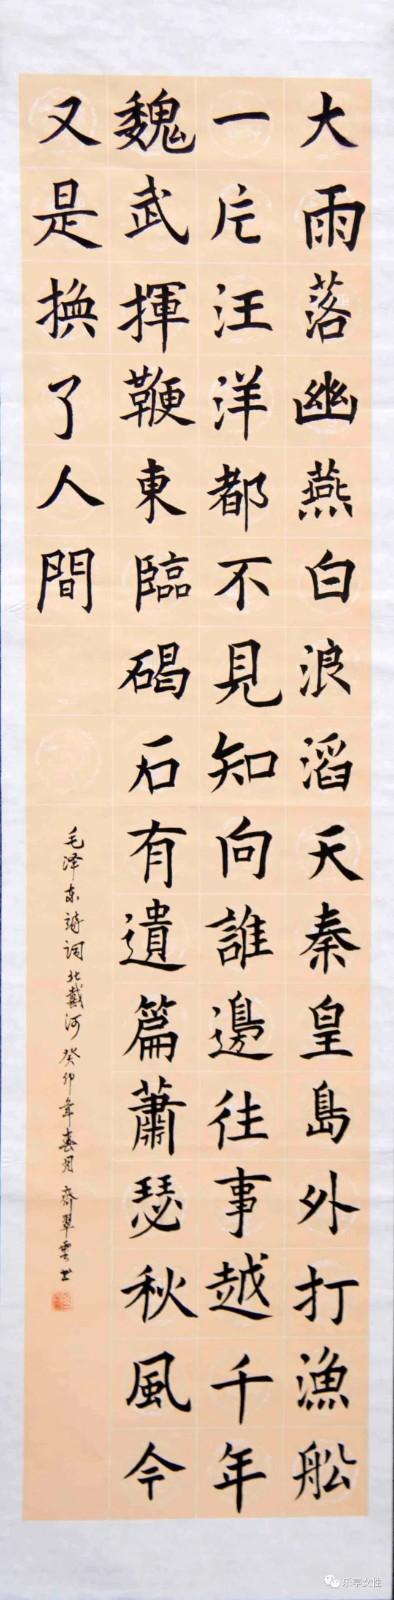 大雨落幽燕白浪滔天秦皇島外打漁船
一片汪洋都不見知向誰邊往事越千年
魏武揮鞭東臨碣石有遺篇蕭瑟秋風今
又是換了人間
毛泽东詩词北戴河 癸卯年春月 齊翠雲书
乐享女性